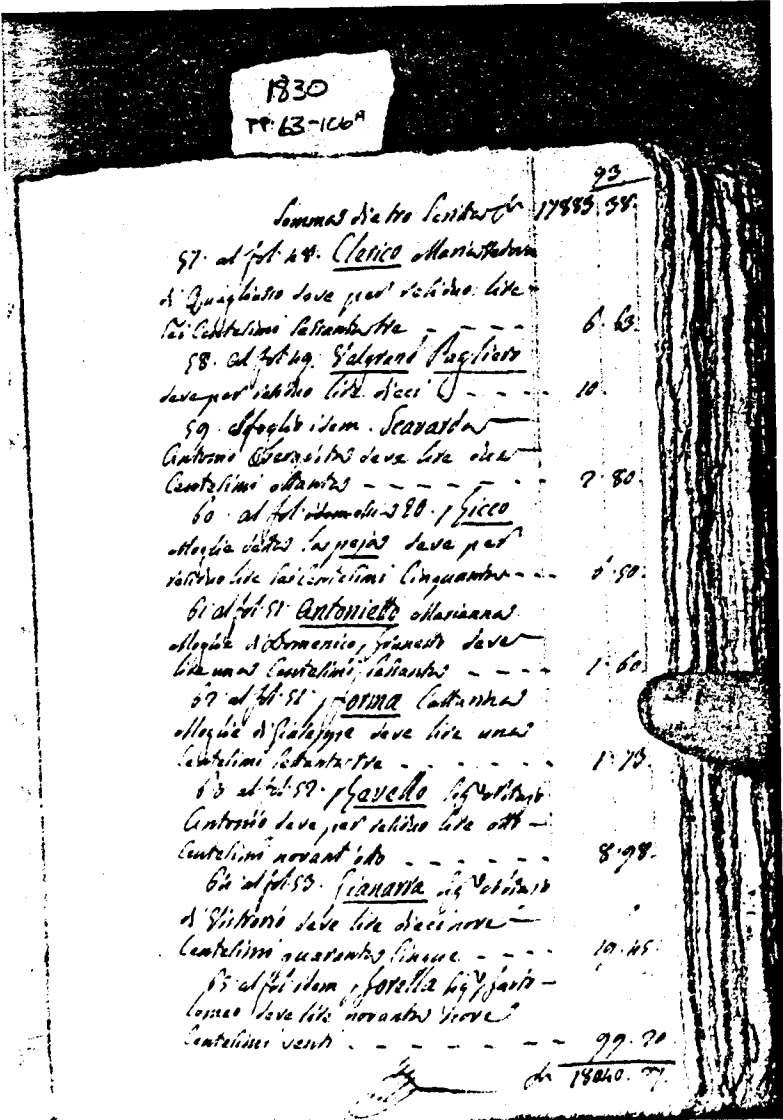 1830
PP. 63-106A
93
Somma dietro scritta £ 17883.38.
57. al fol. 48. Clerico Maria Vedova
di Quagliasso deve per residuo lire
sei Centesimi sessantatre - - - - 6.63.
58. al fol. 49. Valgrand Pagliero
deve per residuo lire dieci - - - - 10.
59. al foglio idem. Scavarda
Antonio deve lire due
Centesimi ottanta - - - - - - - 2.80.
60. al fol. 50.
Moglie deve per
residuo lire sei Centesimi Cinquanta - - - 6.50.
61 al fol. 51. Antonietto Marianna
Moglie di Domenico deve
lire una Centesimi sessanta - - - - 1.60
62 al fol. 51
Moglie di Giuseppe deve lire una
Centesimi settantatre - - - - - - 1.73.
63 al fol. 52.
Antonio deve per residuo lire otto
Centesimi novant'otto - - - - - - 8.98.
64 al fol. 53. Gianarria
di Vittorio deve lire diecinove
Centesimi quaranta Cinque - - - - 19.45
65 al fol. idem
deve lire novanta nove
Centesimi venti - - - - - - - 99.20
18040.27.